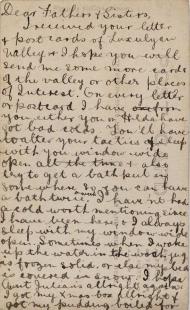 Dear Father & Sisters,
I received your letter
& post cards of Luxulyan
Valley & I hope you will
send me some more cards
of the valley or other places
of Interest. On every letter
or postcard I have
you either you or Hilda have
got bad colds. You'll have
to alter your tactics & sleep
with your window wide
open all the time & also
try to get a bath put in
some where so you can have
a bath twice I have n't had
a cold worth mentioning since
I have been here & I always
sleep with my window wide
open. Sometimes when I wake
up the water in the wash jug
is frozen solid, or else the bed
is covered with I hope
Aunt Julia is allright again
I got my Xmas box allright &
got my pudding boiled for